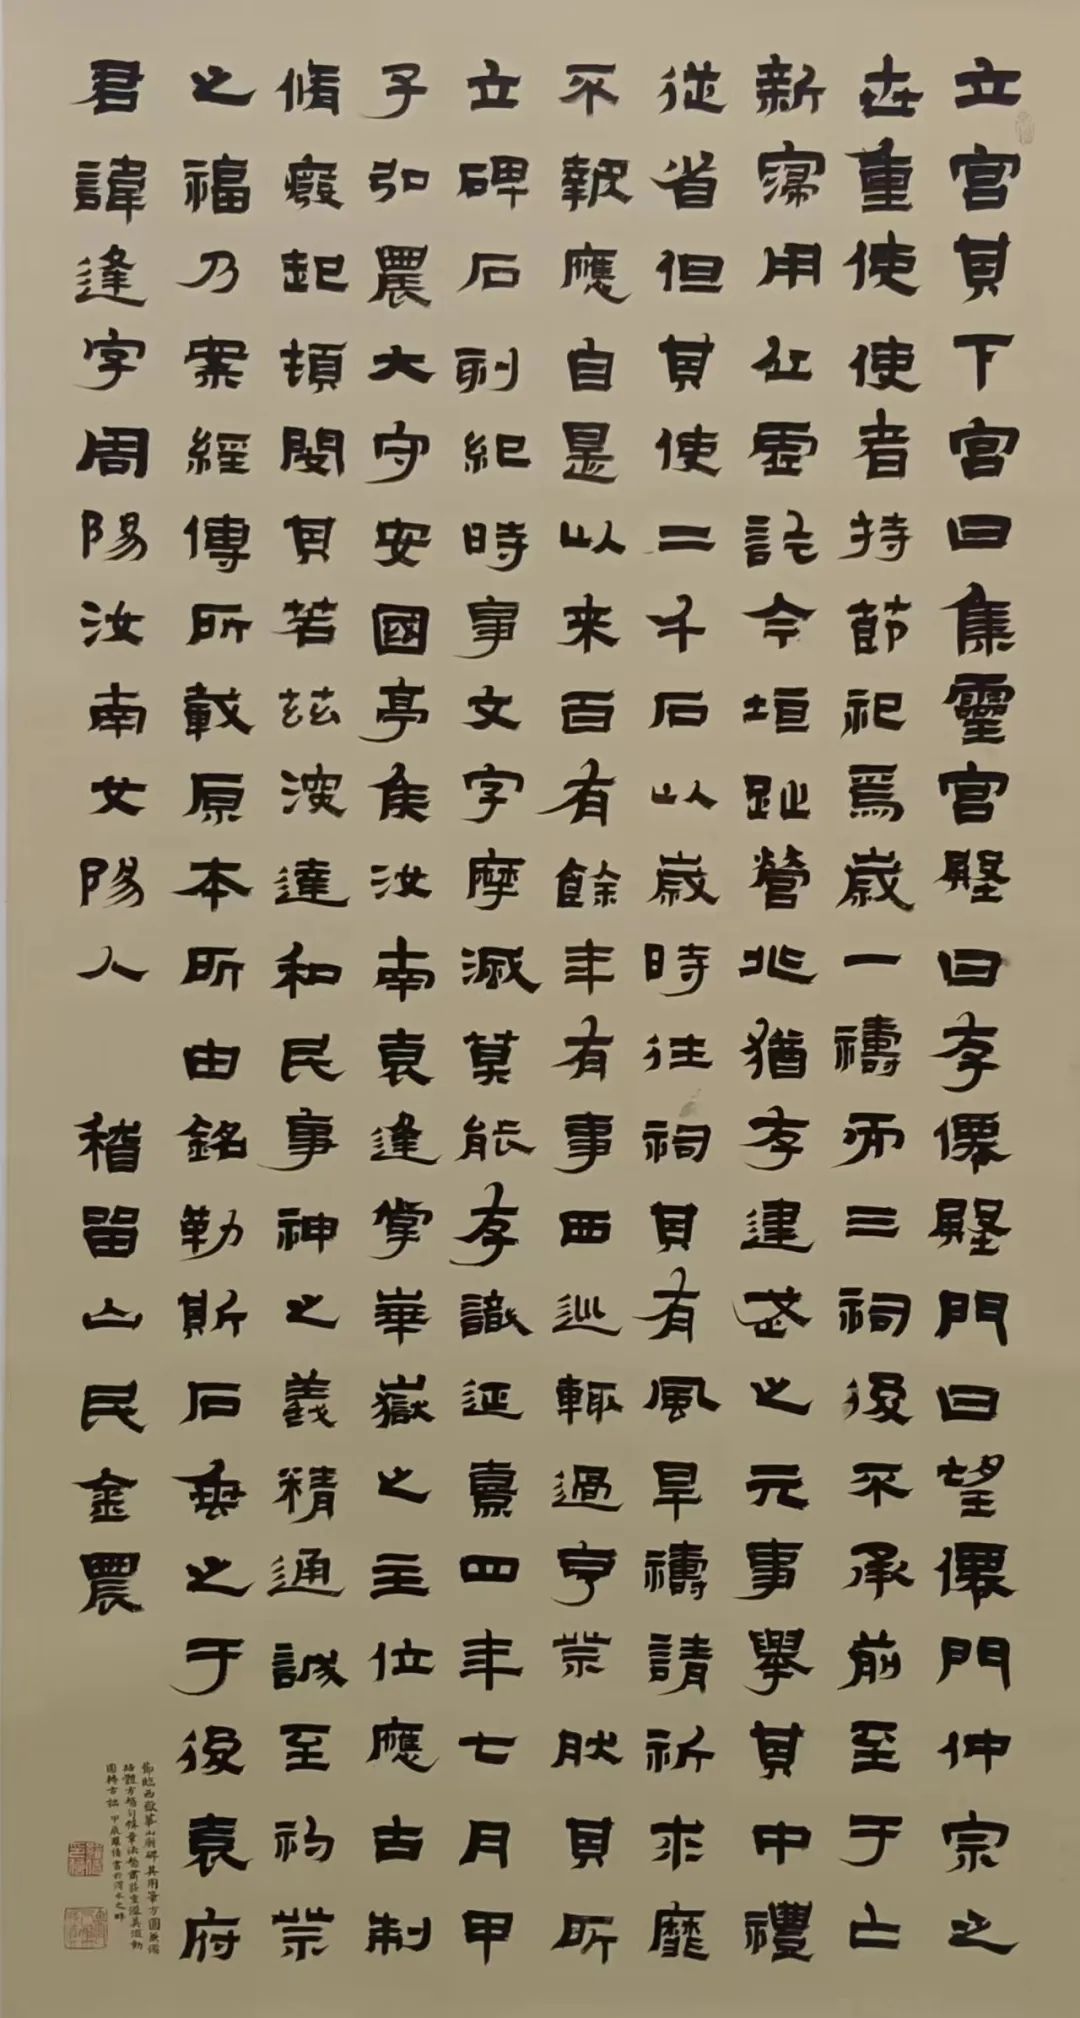 立宮其下宮曰集靈宮殿曰存僊殿門曰望僊門仲宗之
世重使使者持節祀焉歲一禱而三祠後不承前至于亡
新寖用丘虛訖今垣趾營兆猶存建武之元事舉其中禮
從省但其使二千石以歲時往祠其有風旱禱請祈求靡
不報應自是以來百有餘年有事西巡輒過亨祭肰其所
立碑石刻紀時事文字摩滅莫能存識延熹四年七月甲
子弘農大守安國亭侯汝南袁逢掌華嶽之主位應古制
脩癈起頓閔其若茲深達和民事神之義精通誠至礿祭
之福乃案經傳所載原本所由銘勒斯石垂之于後袁府
君諱逢字周陽汝南女陽人 稽留山民金農
節臨西嶽華山廟碑其用筆方圓兼備
結體方整勻條章法整肅莊重溫其
圓轉古 甲辰 書於渭水之畔